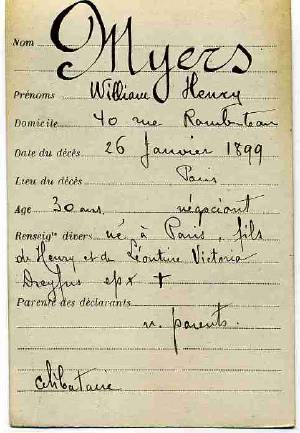 Nom Myers
Prénoms William Henry
Domicile 40 rue Rambuteau
Date du décès 26 Janvier 1899
Lieu du décès Paris
Age 30 ans. négociant
Renseigts divers né à Paris, fils
de Henry et de Léontine Victoria
Dreyfus epx †
Parenté des déclarants
n. parents.
célibataire